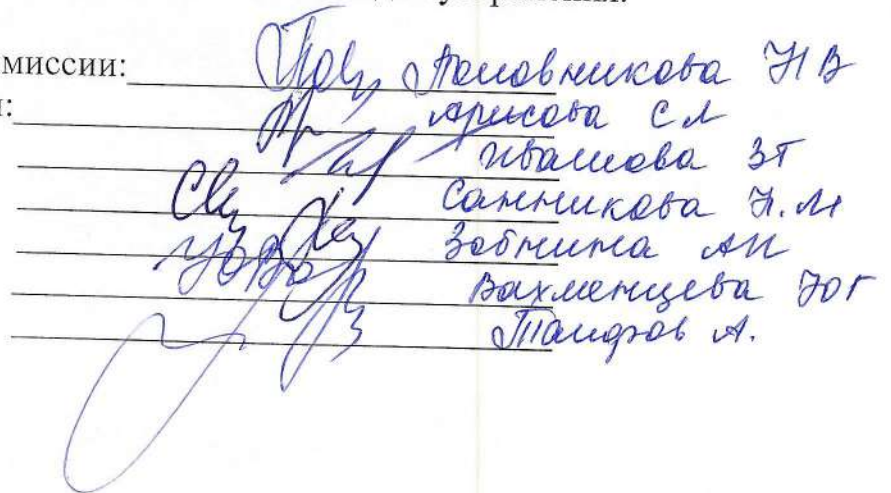 миссии: Половникова Н В
: Арисова С Л
Ивашова ЗТ
Санникова Н. М
Зобнина АН
Вахменцева ЮГ
Таиров А.